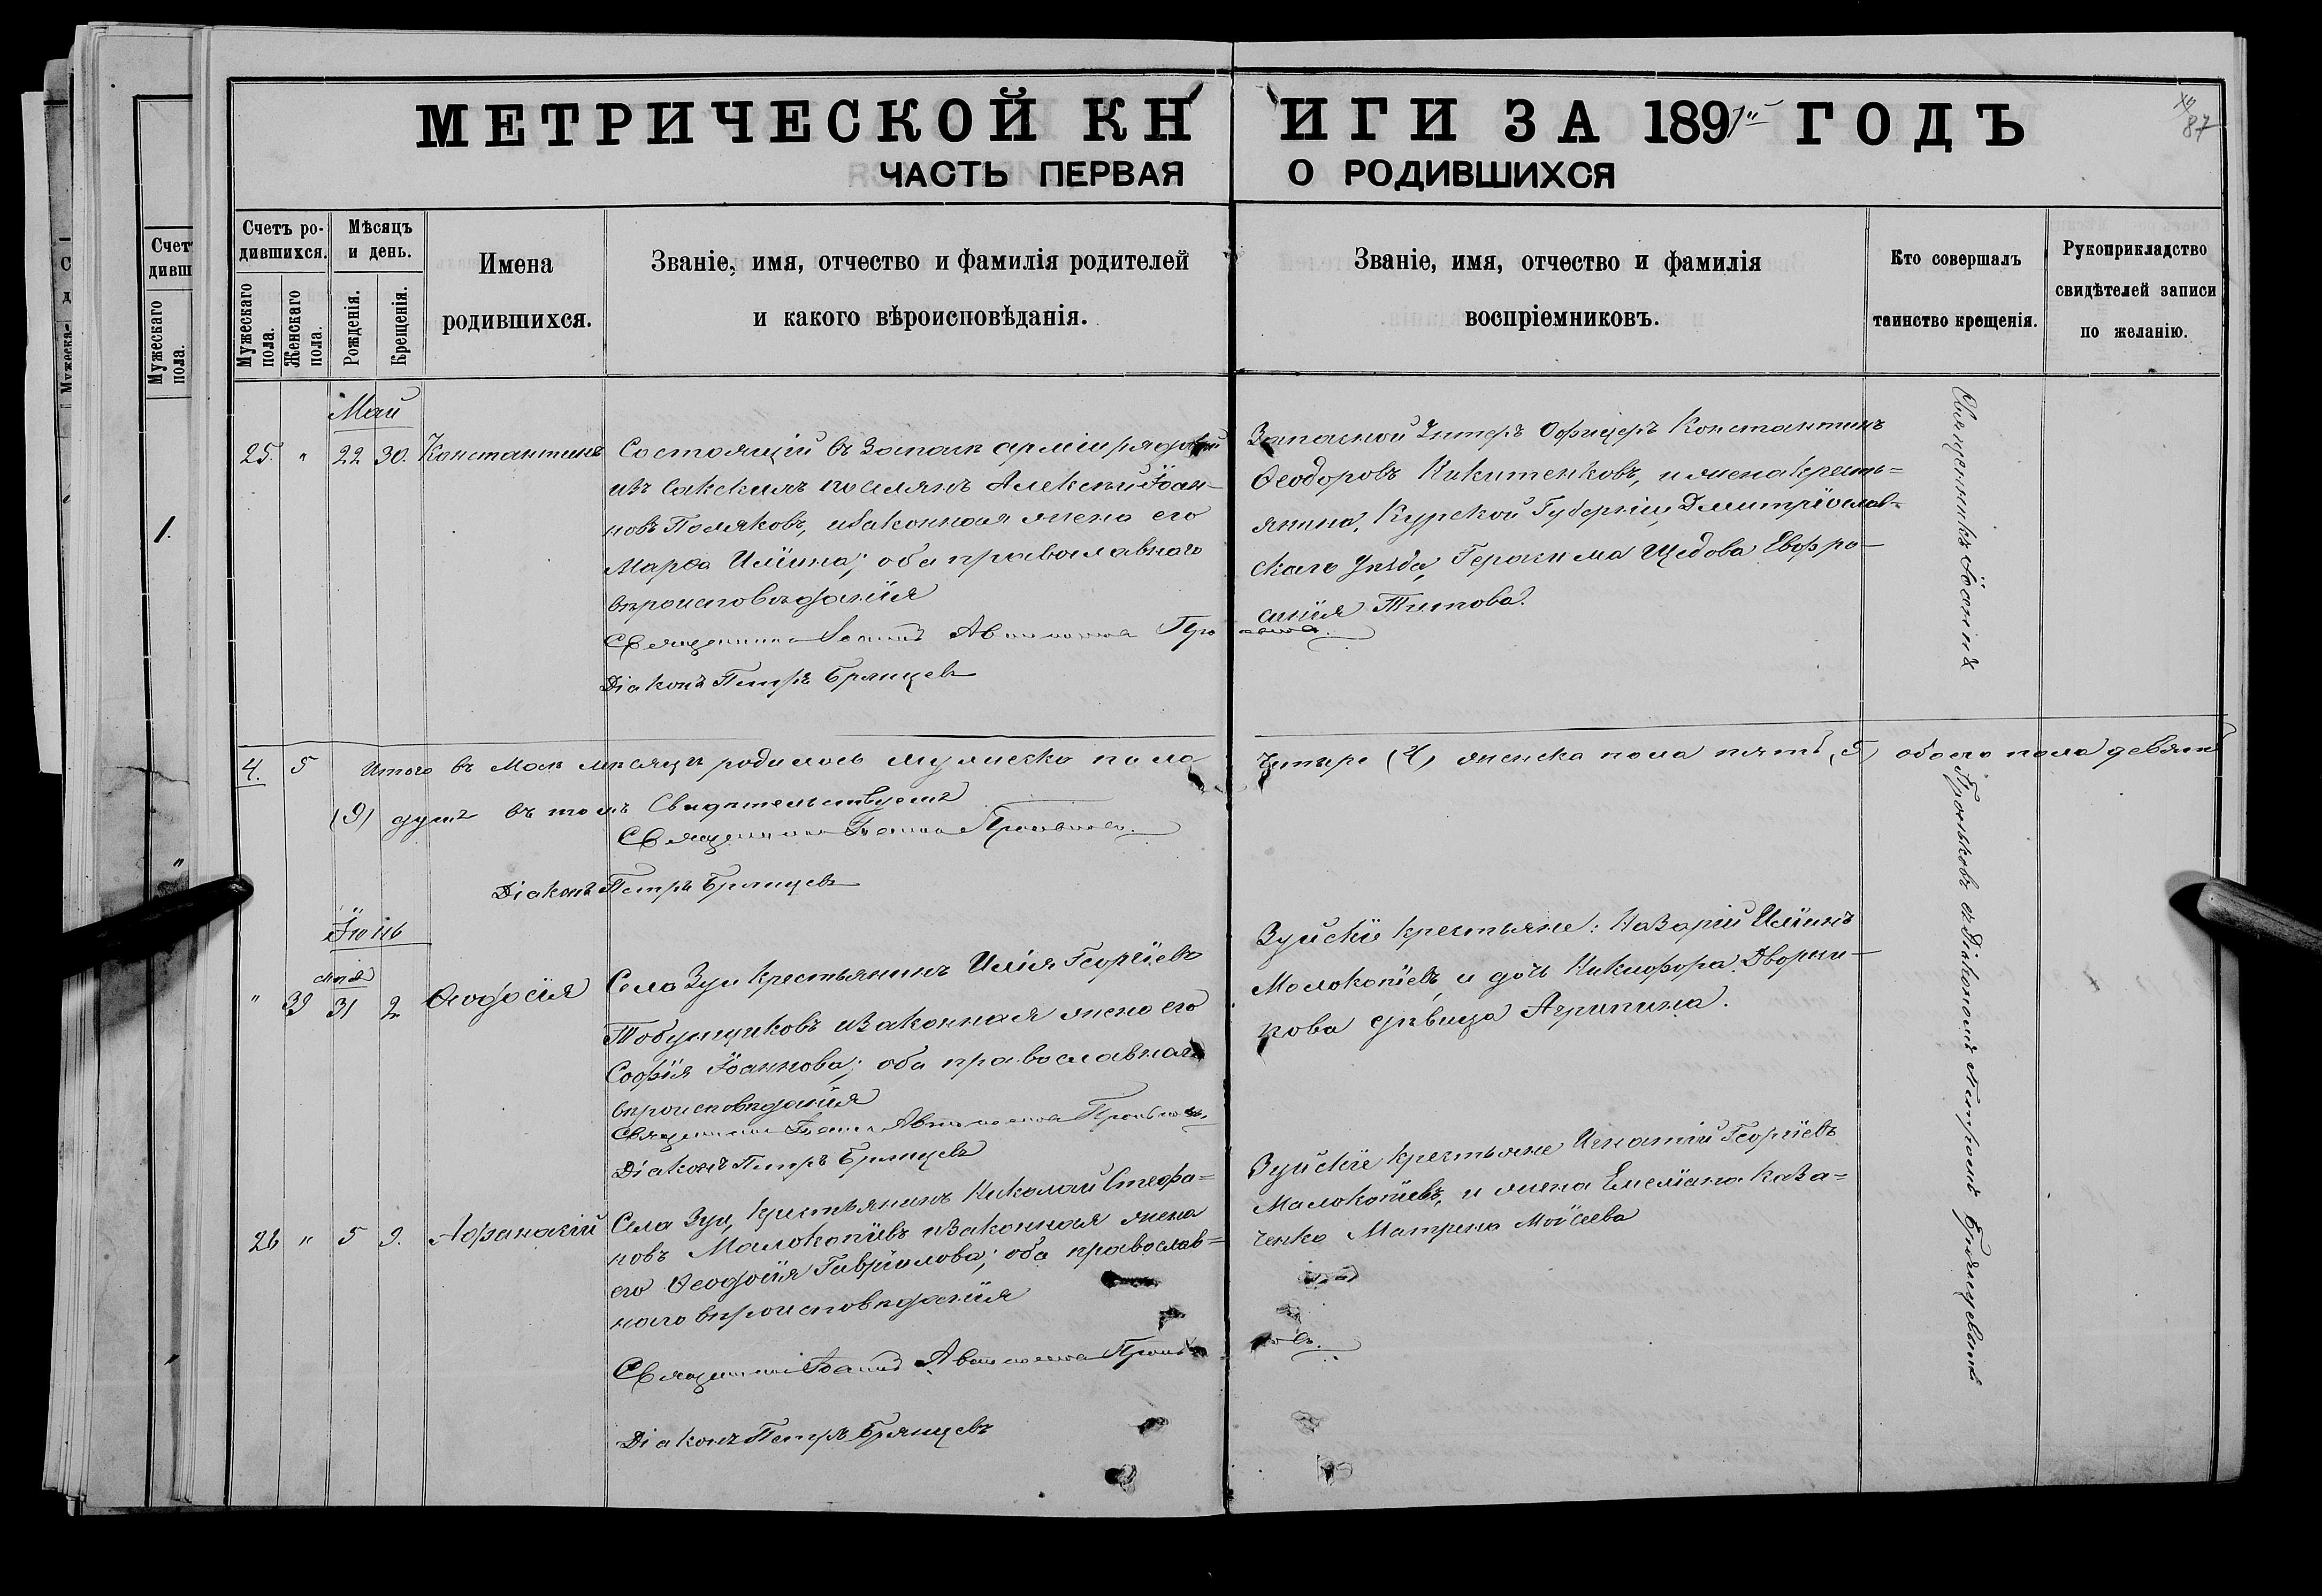 МЕТРИЧЕСКОЙ КНИГИ ЗА 1897й ГОДЪ
87
ЧАСТЬ ПЕРВАЯ О РОДИВШИХСЯ
Счетъ родившихся.
Мужескаго пола.
Женскаго пола.
Мѣсяцъ и день.
Рожденія.
Крещенія.
Имена родившихся.
Званіе, имя, отчество и фамилія родителей
и какого вѣроисповѣданія.
Званіе, имя, отчество и фамилія
воспріемниковъ.
Кто совершалъ
таинство крещенія.
Рукоприкладство
свидѣтелей записи
по желанію.
Май
25. " 22 30. Константинъ
Состоящій въ Запасѣ арміи рядовой
изъ Сакскихъ поселянъ Алексѣй Іоан-
новъ Поляковъ, и законная жена его
Марѳа Иліина; оба православнаго
вѣроисповѣданія
Священникъ Іоаннъ
Діаконъ Петръ Брянцевъ
Запасной Унтеръ Офицеръ Константинъ
Ѳеодоровъ Никитенковъ, и жена кресть=
янина, Курской Губерніи, Дмитріослав-
скаго Уѣзда, Герасима Щедова Евфро-
синія Титова.
4. 5 Итого въ Маѣ мѣсяцѣ родилось мужеска пола
четыре (4), женска пола пять (5) обоего пола девять
(9) душъ въ томъ Свидѣтельствуемъ
Священникъ Іоаннъ
Діаконъ Петръ Брянцевъ
Іюнь
мая
" 39 31 2 Ѳеодосія
Села Зуи крестьянинъ Илія Георгіевъ
Тобунщиковъ и законная жена его
Софія Іоаннова; оба православнаго
вѣроисповѣданія
Священникъ Іоаннъ
Діаконъ Петръ Брянцевъ
Зуйскіе крестьяне: Назарій Иліинъ
Молокопіевъ, и дочь Никифора Дворни-
кова дѣвица Агрипина.
26 " 5 9. Афанасій
Села Зуи, крестьянинъ Николай Стефа=
новъ Малокопіевъ и законная жена
его Ѳеодосія Гавріилова; оба православ=
наго вѣроисповѣданія
Священникъ Іоаннъ
Діаконъ Петръ Брянцевъ
Зуйскіе крестьяне Игнатій Георгіевъ
Малокопіевъ, и жена Емеліана Каза=
ченко Матрена Моисеева
Священникъ Іоаннъ
съ Діакономъ Петромъ Брянцевымъ
Счет
дивш
Мужескаго
пола.
1.